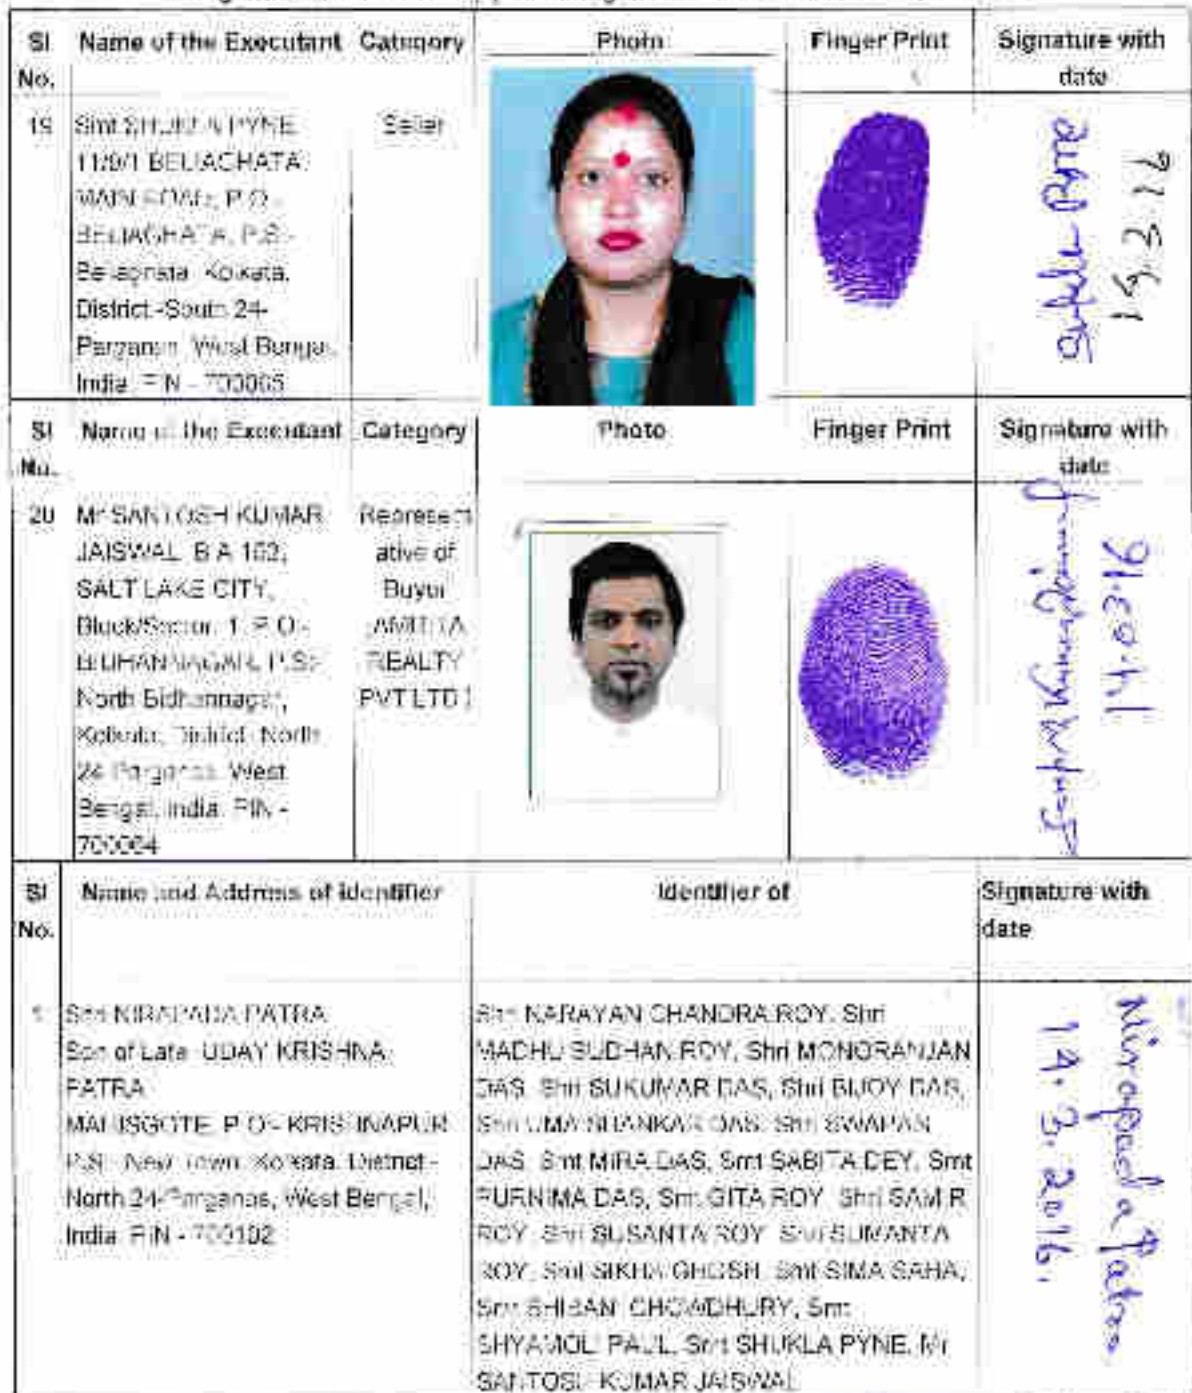 Sl No.
Name of the Executant
Category
Photo
Finger Print
Signature with date
19
Smt SHUKLA PYNE
11/9/1 BELIAGHATA
MAIN ROAD, P.O.-
BELIAGHATA, P.S.-
Beliaghata, Kolkata,
District:-South 24-
Parganas, West Bengal,
India, PIN -
Seller
Pyne
Sl No.
Name of the Executant
Category
Photo
Finger Print
Signature with date
20
Mr SANTOSH KUMAR
JAISWAL B A 163,
SALT LAKE CITY,
Block/Sector: 1, P.O:-
BIDHANNAGAR, P.S:-
North Bidhannagar,
Kolkata, District:-North
24-Parganas, West
Bengal, India, PIN -
700064
Represent
ative of
Buyer
REALTY
PVT LTD
14.03.16
Sl No.
Name and Address of identifier
Identifier of
Signature with date
1
Shri NIRAPADA PATRA
Son of Late UDAY KRISHNA
PATRA
P.O:- KRISHNAPUR
P.S:- New Town, Kolkata, District:-
North 24-Parganas, West Bengal,
India, PIN - 700102
Shri NARAYAN CHANDRA ROY, Shri
MADHU SUDHAN ROY, Shri MONORANJAN
DAS, Shri SUKUMAR DAS, Shri BIJOY DAS,
Shri UMA SHANKAR DAS, Shri SWAPAN
DAS, Smt MIRA DAS, Smt SABITA DEY, Smt
PURNIMA DAS, Smt GITA ROY, Shri SAMIR
ROY, Shri SUSANTA ROY, Shri SUMANTA
ROY, Smt SIKHA GHOSH, Smt SIMA SAHA,
Smt SHIBANI CHOWDHURY, Smt
SHYAMOLI PAUL, Smt SHUKLA PYNE, Mr
SANTOSH KUMAR JAISWAL
Nirapada Patra
14.3.2016.